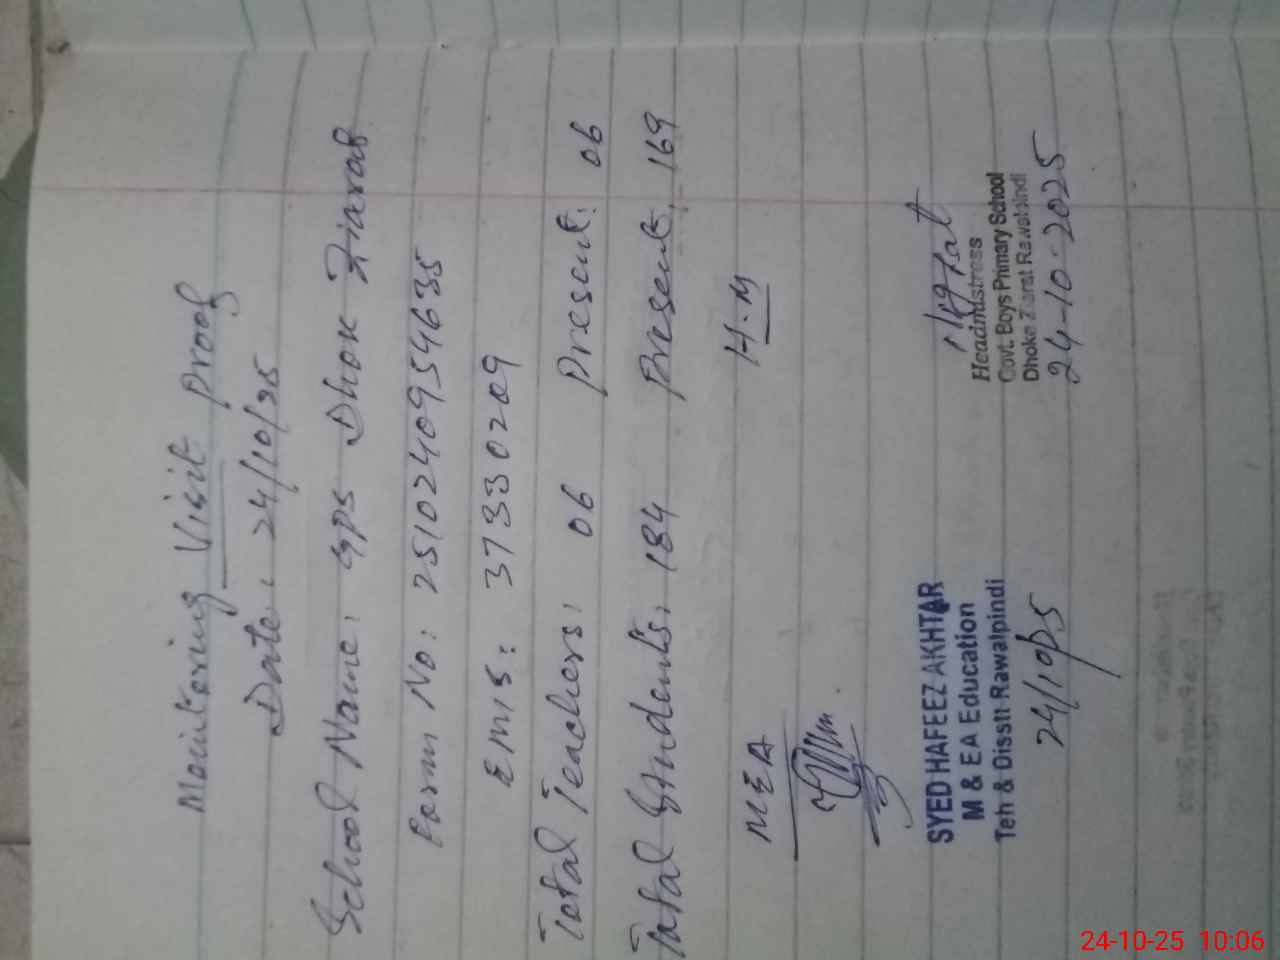 Monitoring Visit Proof
Date: 24/10/25
School Name: GPS Dhok Ziarat
Form No: 25102409554635
EMIS: 37330209
Total Teachers: 06 Present: 06
Total Students: 184 Present: 169
MEA H.M
SYED HAFEEZ AKHTAR
M & EA Education
Teh & Disstt Rawalpindi
24/10/25
Headmistress
Govt. Boys Primary School
Dhoke Ziarat Rawalpindi
24-10-2025
24-10-25 10:06